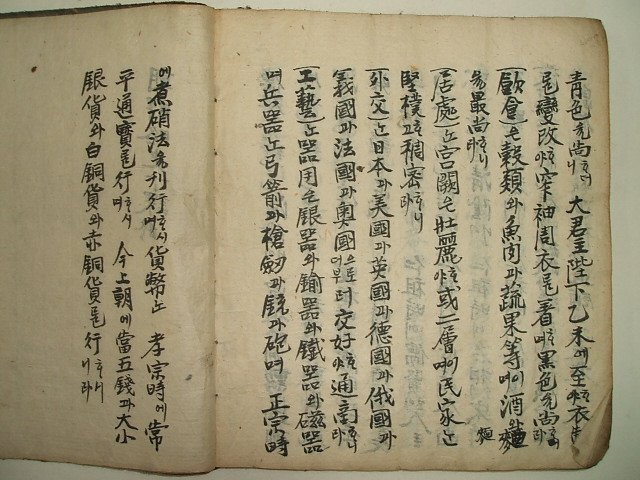 青色을 尙하더니 大君主陛下乙未에 至하야 衣制
를 變改하야 窄袖周衣를 着하며 黑色을 尙하리라
飮食은 穀類와 魚肉과 蔬果等이며 酒와 麵
을 最尙하니라
居處는 宮闕은 壯麗하야 或二層이며 民家는
堅樸고 稠密하니라
外交는 日本과 美國과 英國과 德國과 俄國과
義國과 法國과 奧國으로부터 交好하야 通商하니라
工藝는 器用은 銀器와 鍮器와 鐵器와 磁器
며 兵器는 弓箭과 槍劒과 銃과 砲며 正宗時
에 煮硝法을 刊行하시며 貨幣는 孝宗時에 常
平通寶를 行하시며 今上朝에 當五錢과 大小
銀貨와 白銅貨와 赤銅貨를 行하니라